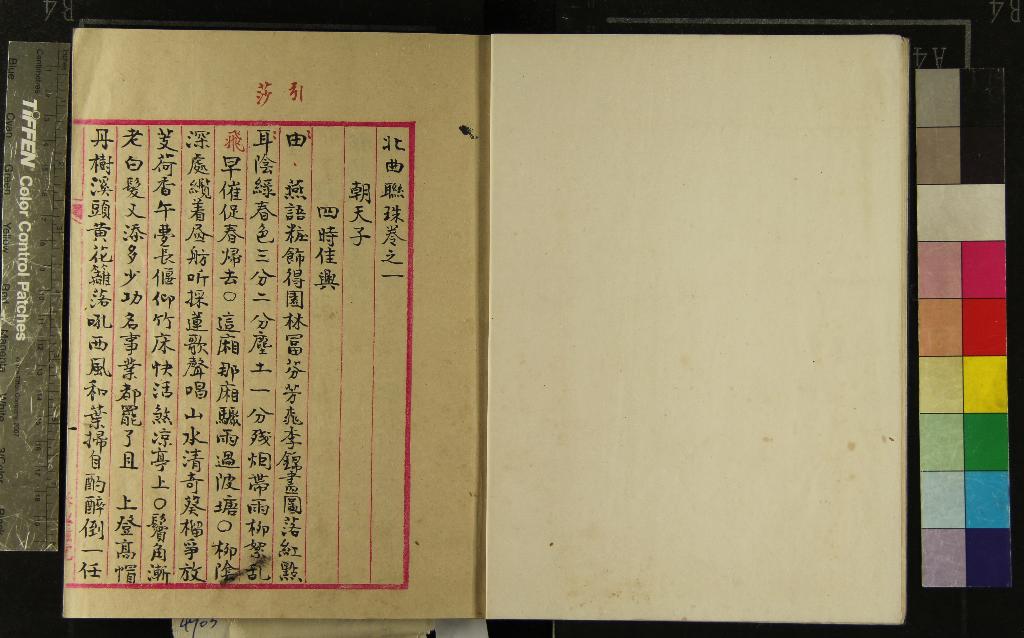 引
莎
北曲聯珠卷之一
朝天子
四時佳興
由、燕語粧飾得園林冨芬芳桃李錦畫圖落紅㸃
耳陰綠春色三分二分塵土一分殘烟帶雨柳絮乱
飛早催促春㷌去○這廂那廂驟雨過陂塘○柳陰
深處纜着昼舫听採蓮歌聲唱山水清奇葵榴爭放
芰荷香午夢長偃仰竹床快活煞凉亭上○鬢角漸
老白髮又添多少功名事業都罷了且 上登高帽
丹樹溪頭黄花籬落吼西風和葉掃自酌醉倒一任
TIFFEN Color Control Patches
Centimetres
Blue
Cyan
Green
Yellow
Red
Magenta
White
3/Color
Black
4703
A4
B4
B4